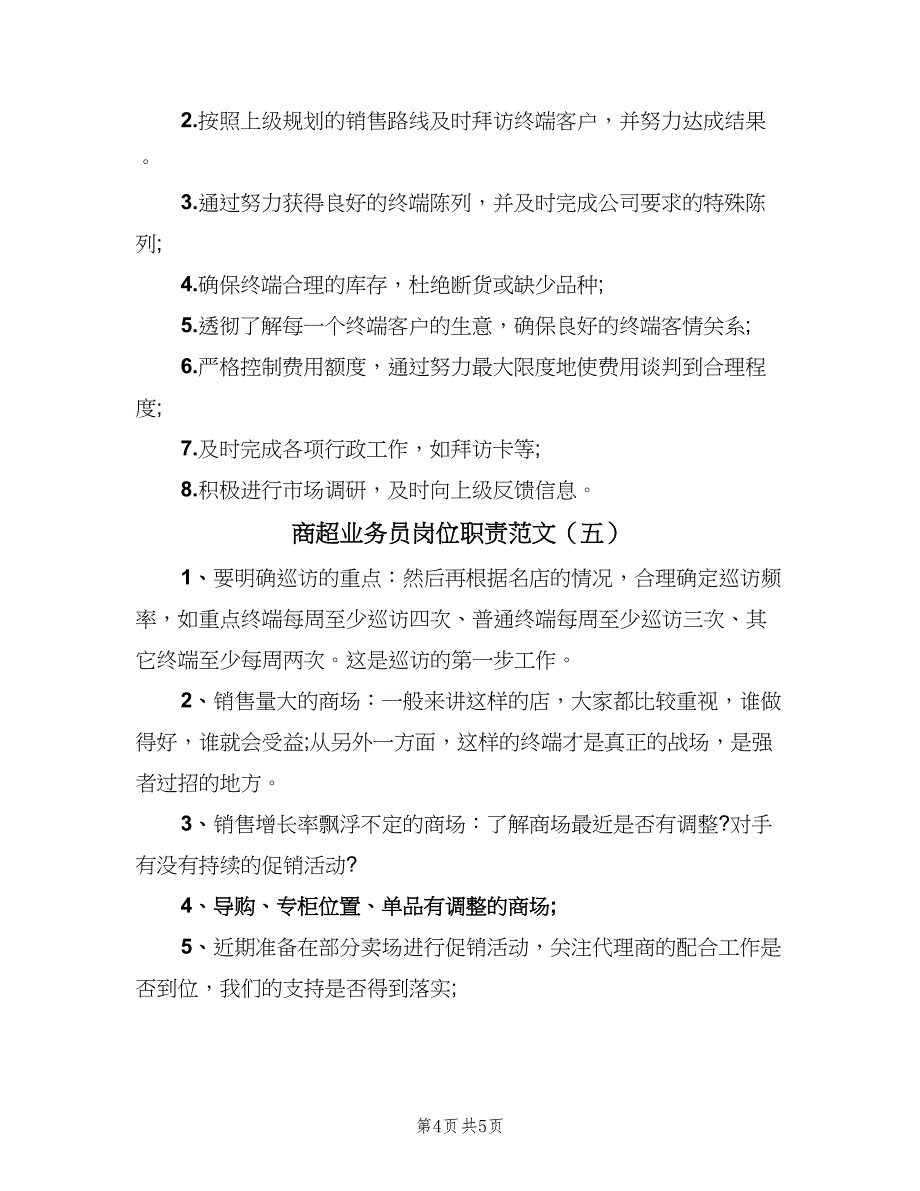 2.按照上级规划的销售路线及时拜访终端客户，并努力达成结果
。
3.通过努力获得良好的终端陈列，并及时完成公司要求的特殊陈
列;
4.确保终端合理的库存，杜绝断货或缺少品种;
5.透彻了解每一个终端客户的生意，确保良好的终端客情关系;
6.严格控制费用额度，通过努力最大限度地使费用谈判到合理程
度;
7.及时完成各项行政工作，如拜访卡等;
8.积极进行市场调研，及时向上级反馈信息。
商超业务员岗位职责范文（五）
1、要明确巡访的重点：然后再根据名店的情况，合理确定巡访频
率，如重点终端每周至少巡访四次、普通终端每周至少巡访三次、其
它终端至少每周两次。这是巡访的第一步工作。
2、销售量大的商场：一般来讲这样的店，大家都比较重视，谁做
得好，谁就会受益;从另外一方面，这样的终端才是真正的战场，是强
者过招的地方。
3、销售增长率飘浮不定的商场：了解商场最近是否有调整?对手
有没有持续的促销活动?
4、导购、专柜位置、单品有调整的商场;
5、近期准备在部分卖场进行促销活动，关注代理商的配合工作是
否到位，我们的支持是否得到落实;
第4页 共5页